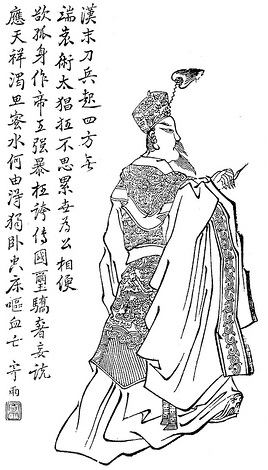 漢末刀兵起四方無
端袁術太猖狂不思累世為公相便
欲孤身作帝王強暴枉誇傳國璽驕奢妄說
應天祥渴思蜜水何由得獨臥空床嘔血亡